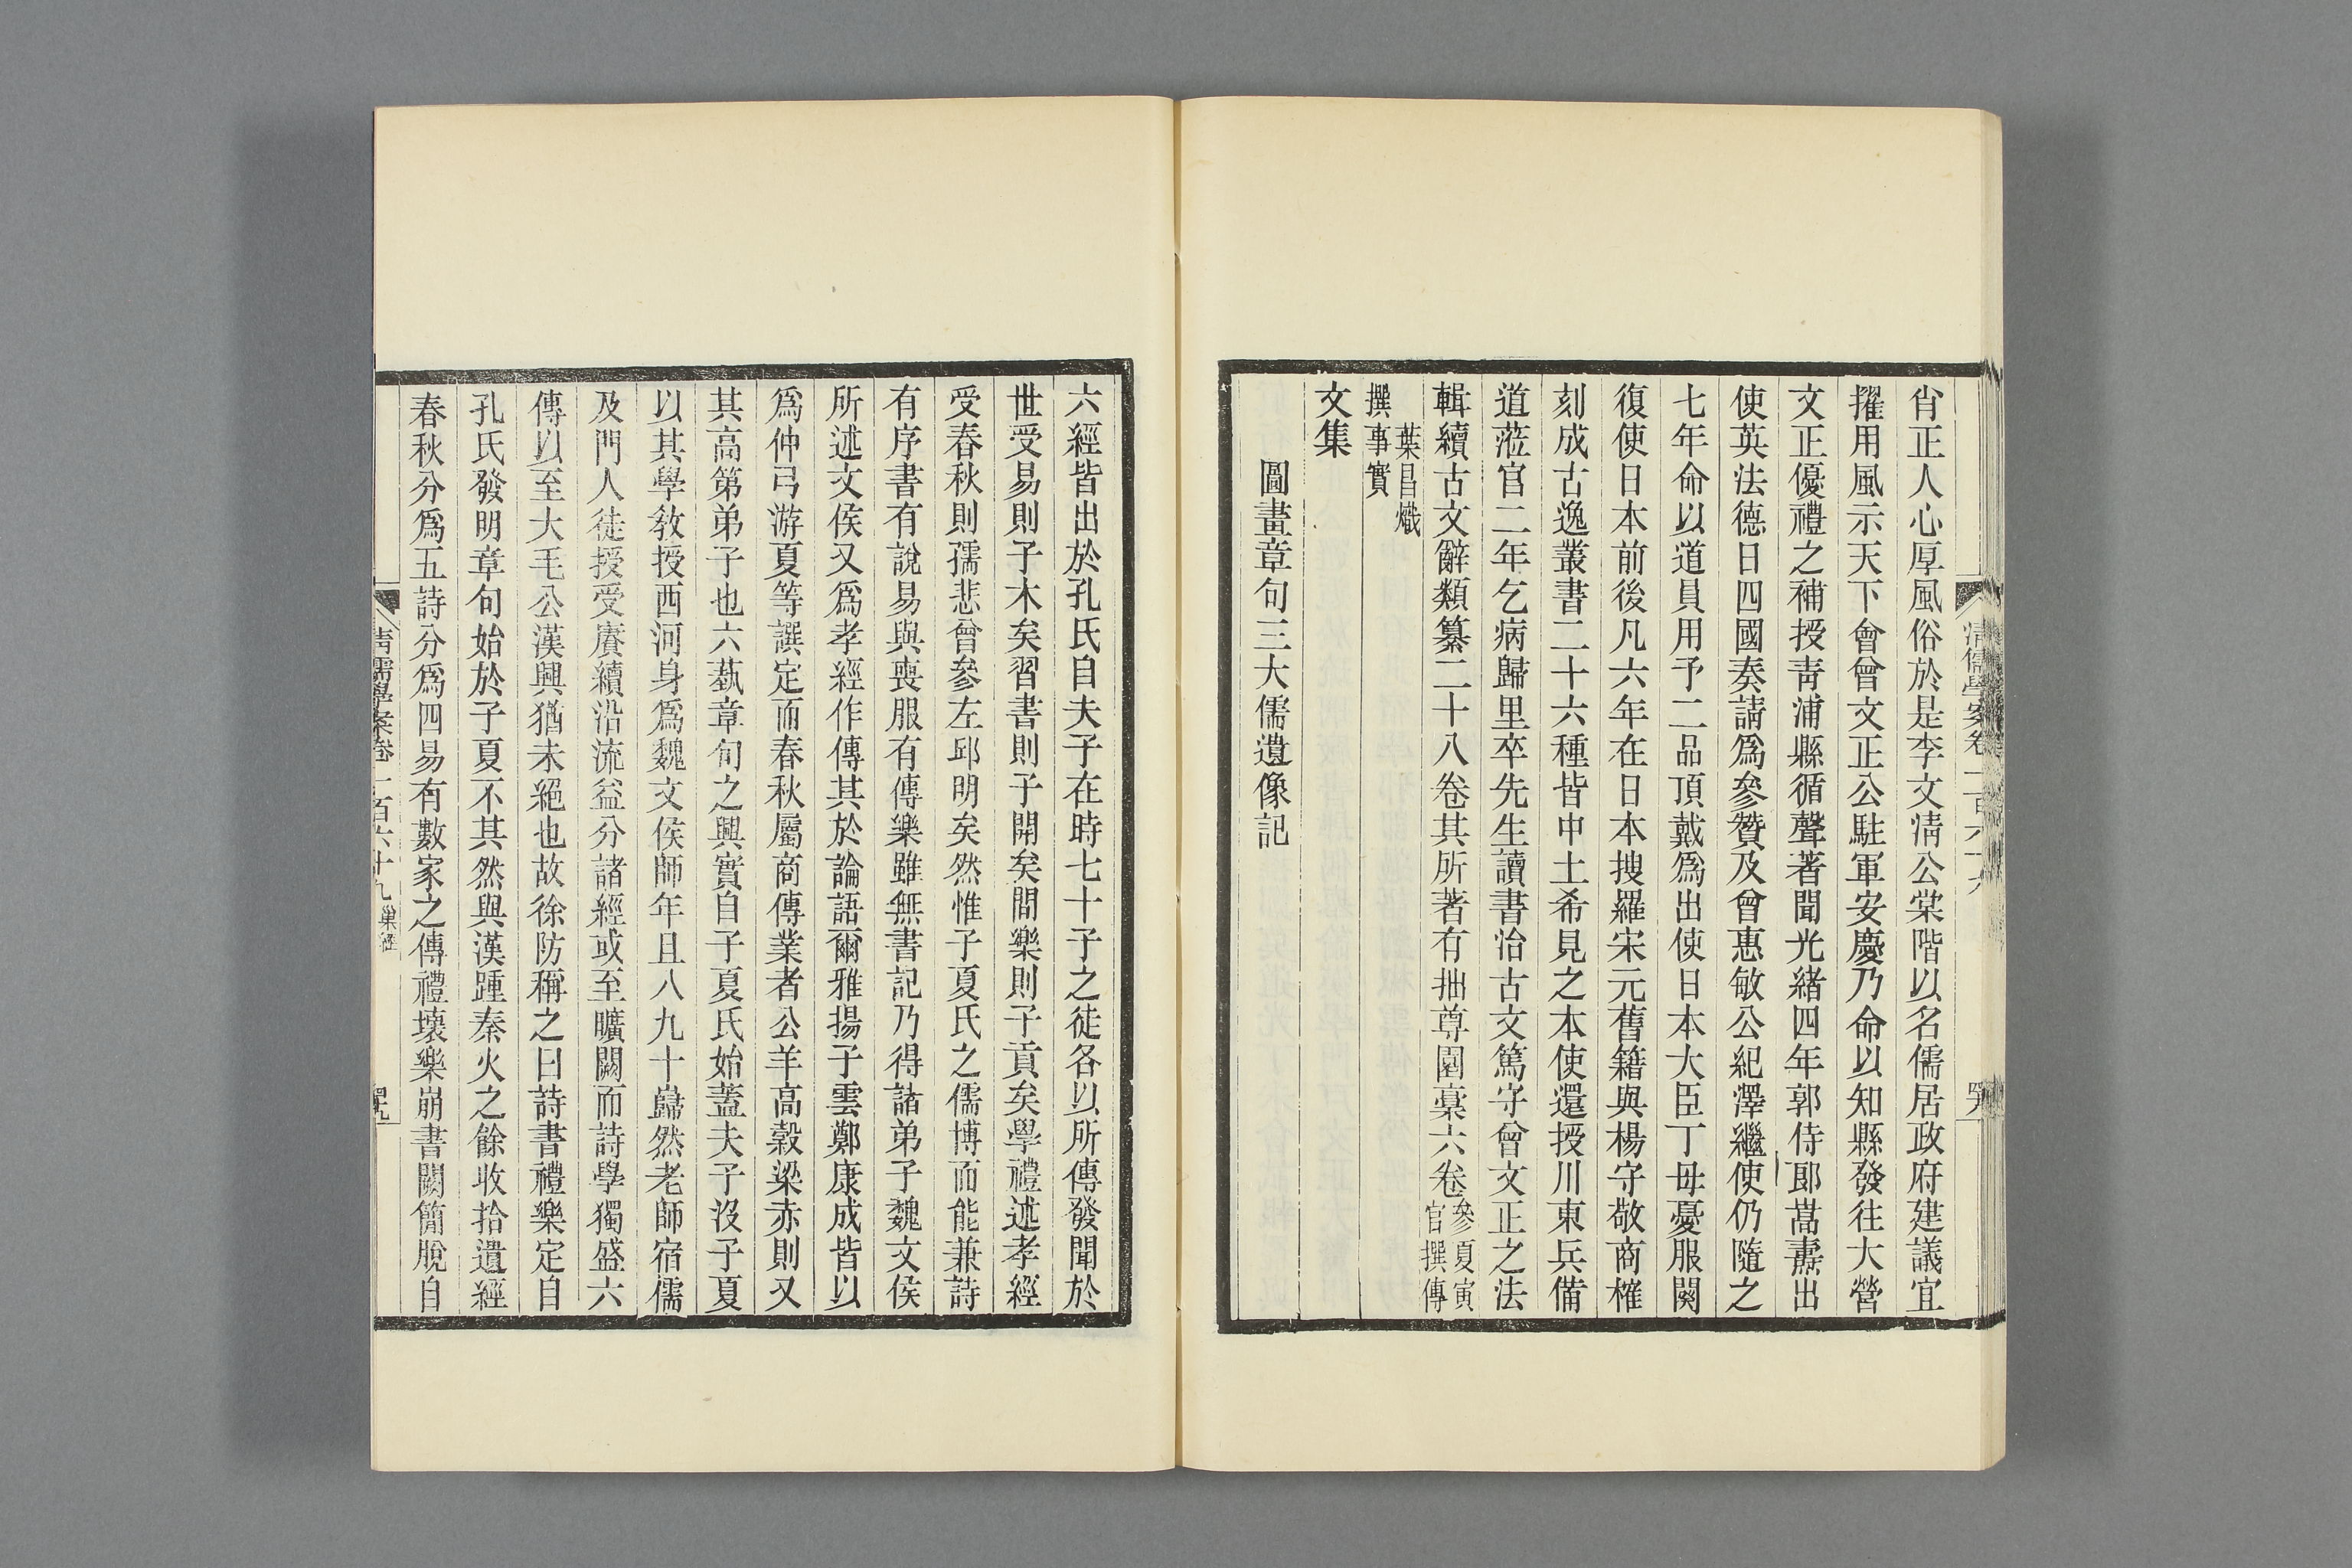 肖正人心厚風俗於是李文淸公棠階以名儒居政府建議宜
擢用風示天下會曾文正公駐軍安慶乃命以知縣發往大營
文正優禮之補授靑浦縣循聲著聞光緖四年郭侍郞嵩燾出
使英法德日四國奏請爲參贊及曾惠敏公紀澤繼使仍隨之
七年命以道員用予二品頂戴爲出使日本大臣丁母憂服闋
復使日本前後凡六年在日本搜羅宋元舊籍與楊守敬商榷
刻成古逸叢書二十六種皆中土希見之本使還授川東兵備
道蒞官二年乞病歸里卒先生讀書治古文篤守曾文正之法
輯續古文辭類纂二十八卷其所著有拙尊園稾六卷參夏寅官撰傳
葉昌熾撰事實
文集
圖畫章句三大儒遺像記
六經皆出於孔氏自夫子在時七十子之徒各以所傳發聞於
世受易則子木矣習書則子開矣問樂則子貢矣學禮述孝經
受春秋則孺悲曾參左邱明矣然惟子夏氏之儒博而能兼詩
有序書有說易與喪服有傳樂雖無書記乃得諸弟子魏文侯
所述文侯又爲孝經作傳其於論語爾雅揚子雲鄭康成皆以
爲仲弓游夏等譔定而春秋屬商傳業者公羊高穀梁赤則又
其高第弟子也六蓺章句之興實自子夏氏始蓋夫子沒子夏
以其學敎授西河身爲魏文侯師年且八九十巋然老師宿儒
及門人徒授受賡續沿流益分諸經或至曠闕而詩學獨盛六
傳以至大毛公漢興猶未絕也故徐防稱之曰詩書禮樂定自
孔氏發明章句始於子夏不其然與漢踵秦火之餘收拾遺經
春秋分爲五詩分爲四易有數家之傳禮壞樂崩書闕簡脫自
淸儒學案卷一百六十九